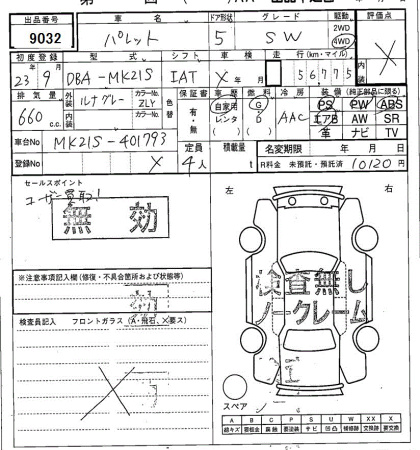 出品番号 車名 ドア形状 グレード 駆動 評価点
9032 パレット 5 SW 2WD 4WD X
初度登録 型式 シフト 車検 走行(km・マイル)
23年9月 DBA-MK21S IAT X年 月 56,775
排気量 外装 ルナグレー カラーNo. ZLY 色替 保証書 車歴 燃料 冷房 装備(純正部品に限る)
660c.c. 内装 カラーNo. 有・無 自家用 レンタ G D AAC PS PW ABS
エアB AW SR
革 ナビ TV
車台No MK21S-401793 定員 積載量 名変期限 年 月 日
登録No X 4人 t R料金 未預託・預託済 10120円
セールスポイント
ユーザー買取!
無効
左 右
※注意事項記入欄(修復・不具合箇所および状態等)
検査無し
ノークレーム
検査員記入 フロントガラス(A・飛石、X要ス)
スペア
A B C P S U W X XX
線キズ 腐蝕 要塗装 サビ 凹凸 補修跡 要交換 交換跡